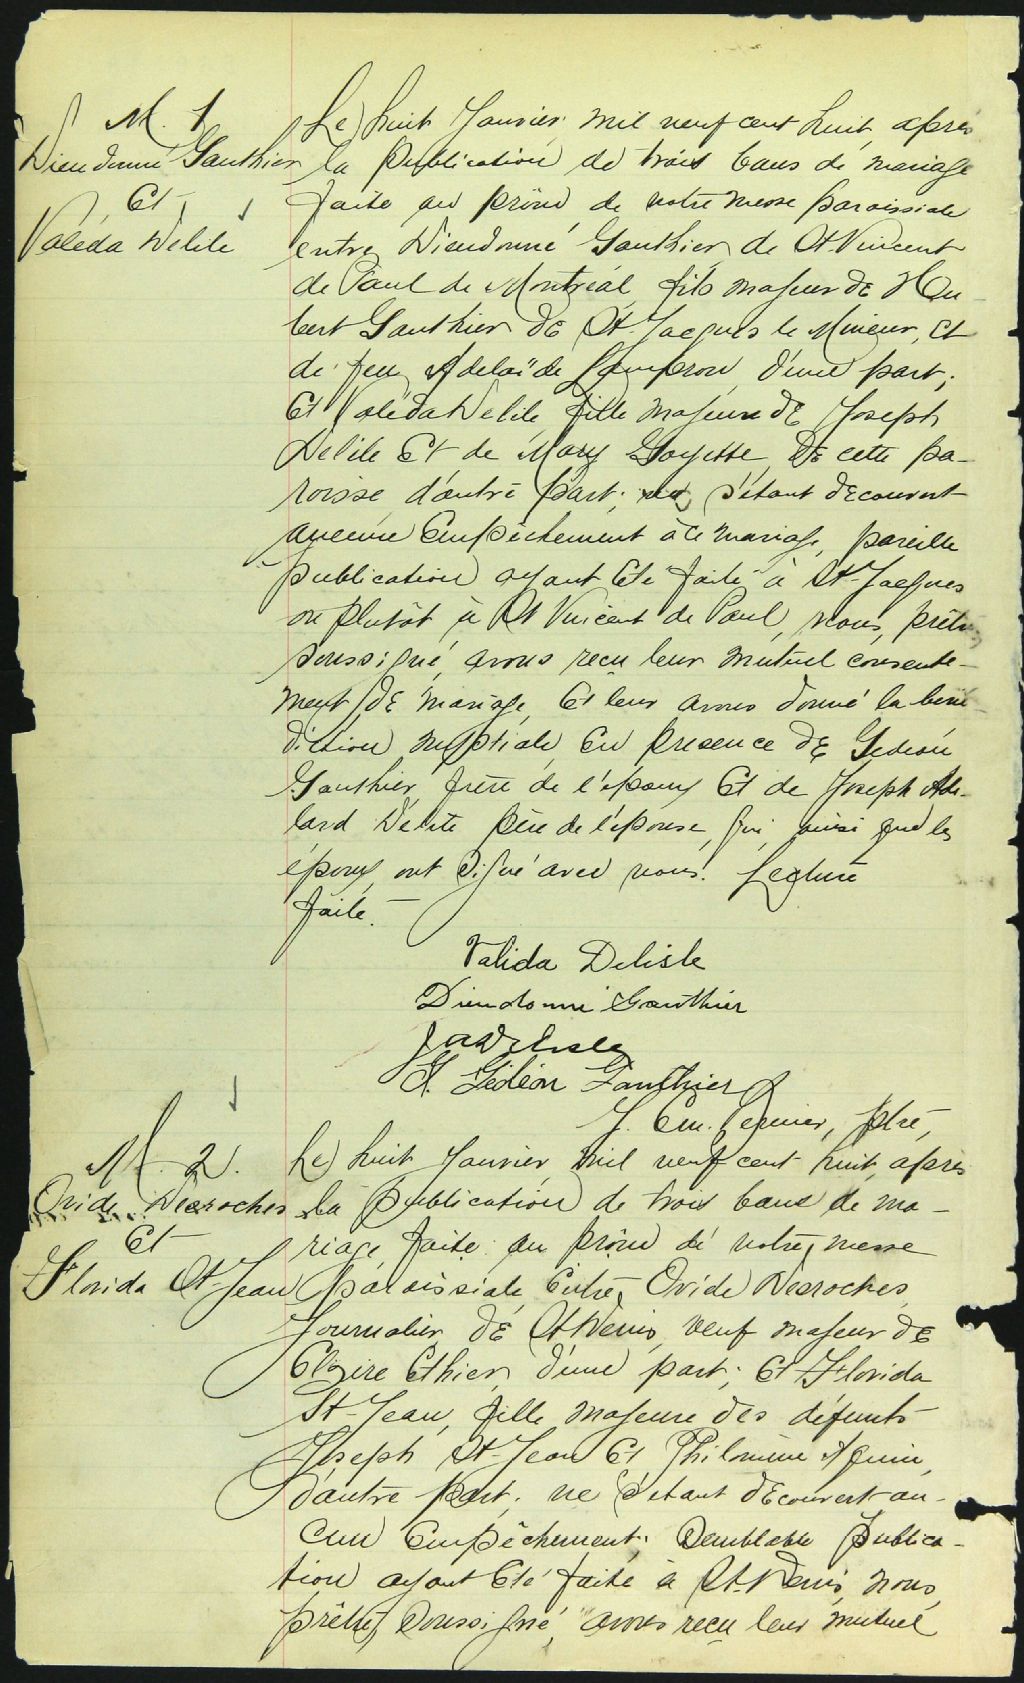 M. 1
Dieudonné Gauthier
Et
Valéda Delile
Le huit Janvier mil neuf cent huit, après
la publication de trois bans de mariage
faite au prône de notre messe paroissiale
entre Dieudonné Gauthier de St Vincent
de Paul de Montréal, fils majeur de Hu-
bert Gauthier de St-Jacques le Mineur, et
de feu Adelaïde Lamprou, d'une part;
Et Valéda Delile fille majeure de Joseph
Delile Et de Mary Goyette, de cette pa-
roisse, d'autre part; ne s'étant découvert
aucune Empêchement à ce mariage, pareille
publication ayant été faite à St-Jacques
ou plutôt à St Vincent de Paul, nous, prêtre
soussigné, avons reçu leur mutuel consente-
ment de mariage, Et leur avons donné la béné-
diction nuptiale en présence de Gédéon
Gauthier, frère de l'époux Et de Joseph Ade-
lard Delile père de l'épouse, qui, ainsi que les
époux, ont signé avec nous. Lecture
faite. -
Valida Delisle
Dieudonné Gauthier
J A Delisle
G. Gédéon Gauthier
J. Em. , ptre,
M. 2.
Ovide Desroches
Et
Florida St-Jean
Le huit Janvier, mil neuf cent huit, après
la publication de trois bans de ma-
riage faite au prône de notre messe
paroissiale, Entre Ovide Desroches,
Journalier, de St Denis, veuf majeur de
Claire Ethier, d'une part; Et Florida
St-Jean, fille majeure des défunts
Joseph St-Jean Et Philomène Aquin,
d'autre part; ne s'étant découvert au-
cun Empêchement; Semblable publica-
tion ayant été faite à St-Denis, nous,
prêtre soussigné, avons reçu leur mutuel